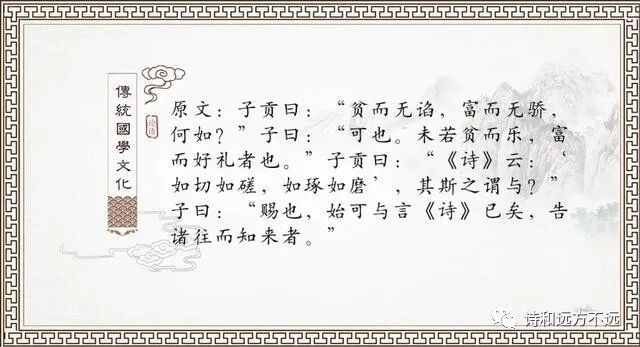 傳統國學文化
论语
原文：子贡曰：“贫而无谄，富而无骄，
何如？”子曰：“可也。未若贫而乐，富
而好礼者也。”子贡曰：“《诗》云：‘
如切如磋，如琢如磨’，其斯之谓与？”
子曰：“赐也，始可与言《诗》已矣，告
诸往而知来者。”
诗和远方不远